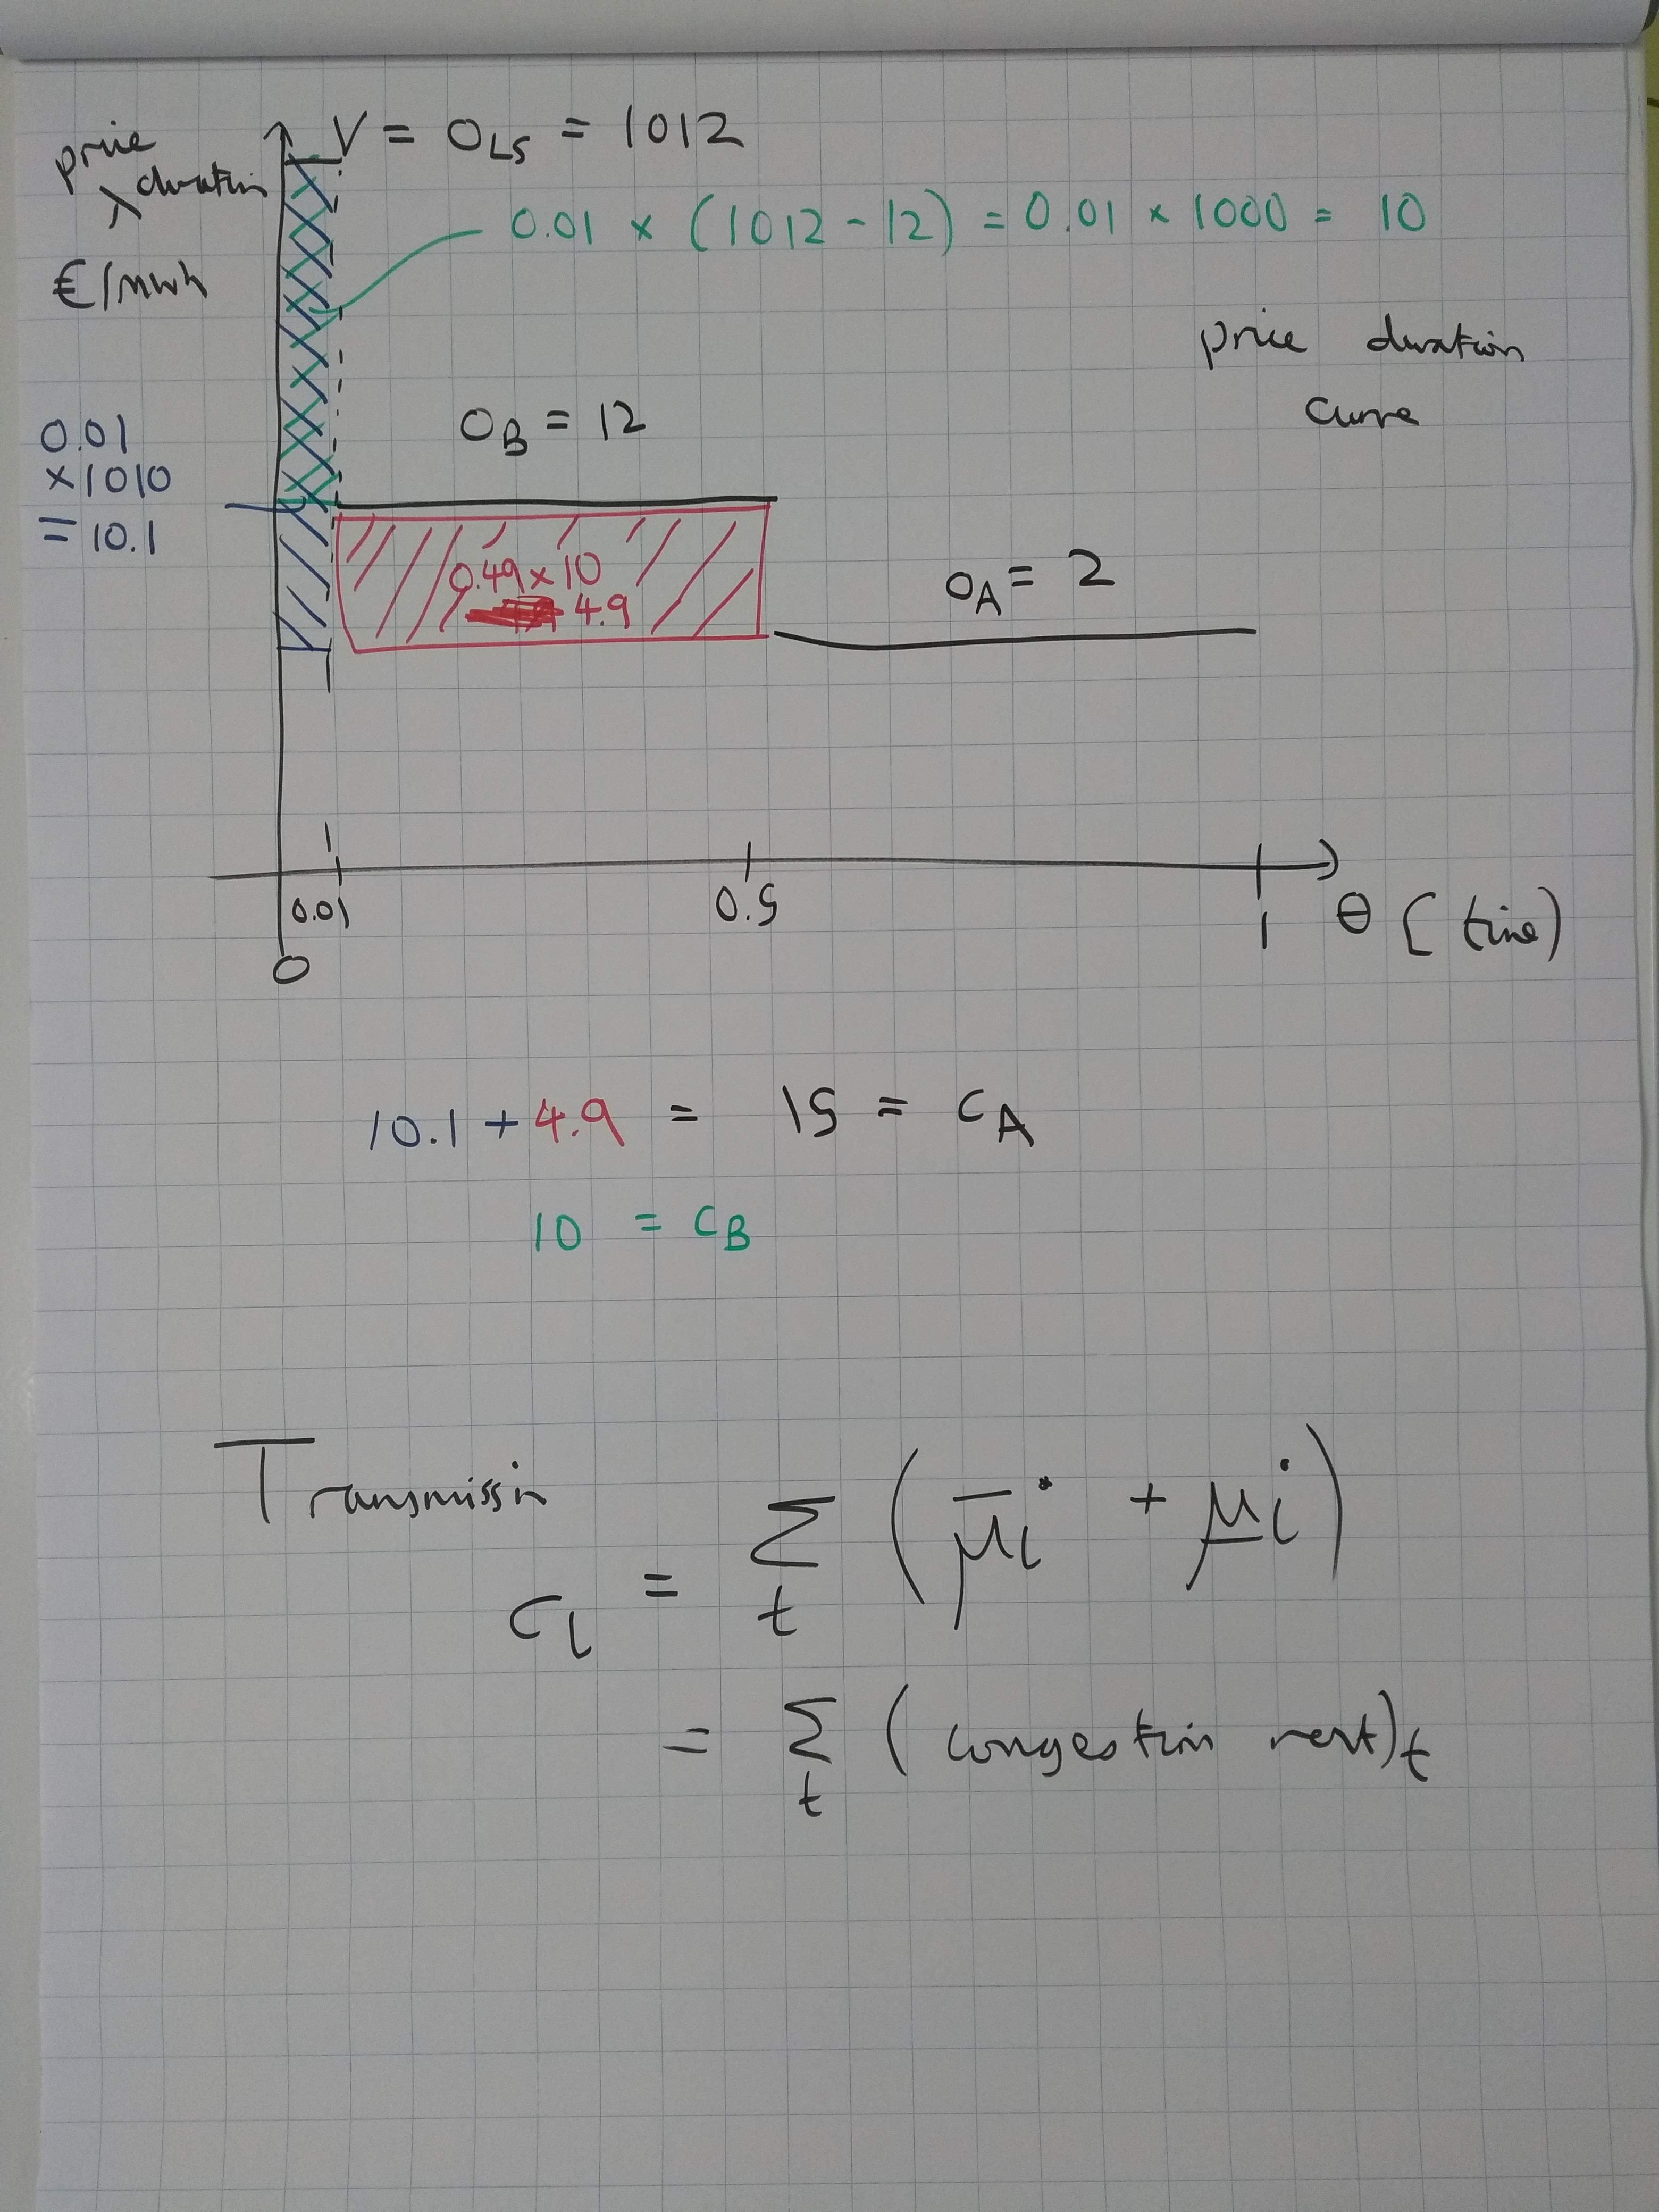 price
duration
λ
€/MWh
V = O_LS = 1012
0.01 × (1012 - 12) = 0.01 × 1000 = 10
price duration
curve
0.01
×1010
= 10.1
O_B = 12
0.49 × 10
4.9
O_A = 2
0.01
0.5
1
θ (time)
0
10.1 + 4.9 = 15 = C_A
10 = C_B
Transmission
C_L = Σ_t (μ̄_i + μ̲_i)
= Σ_t (congestion rent)_t